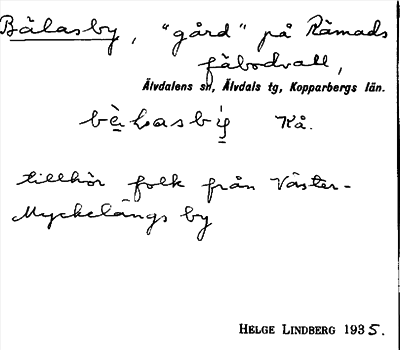 Bälasby, "gård" på Rämads
fäbodvall,
Älvdalens sn, Älvdals tg, Kopparbergs län.
Kå.
tillhör folk från Väster-
Myckelängs by
HELGE LINDBERG 1935.